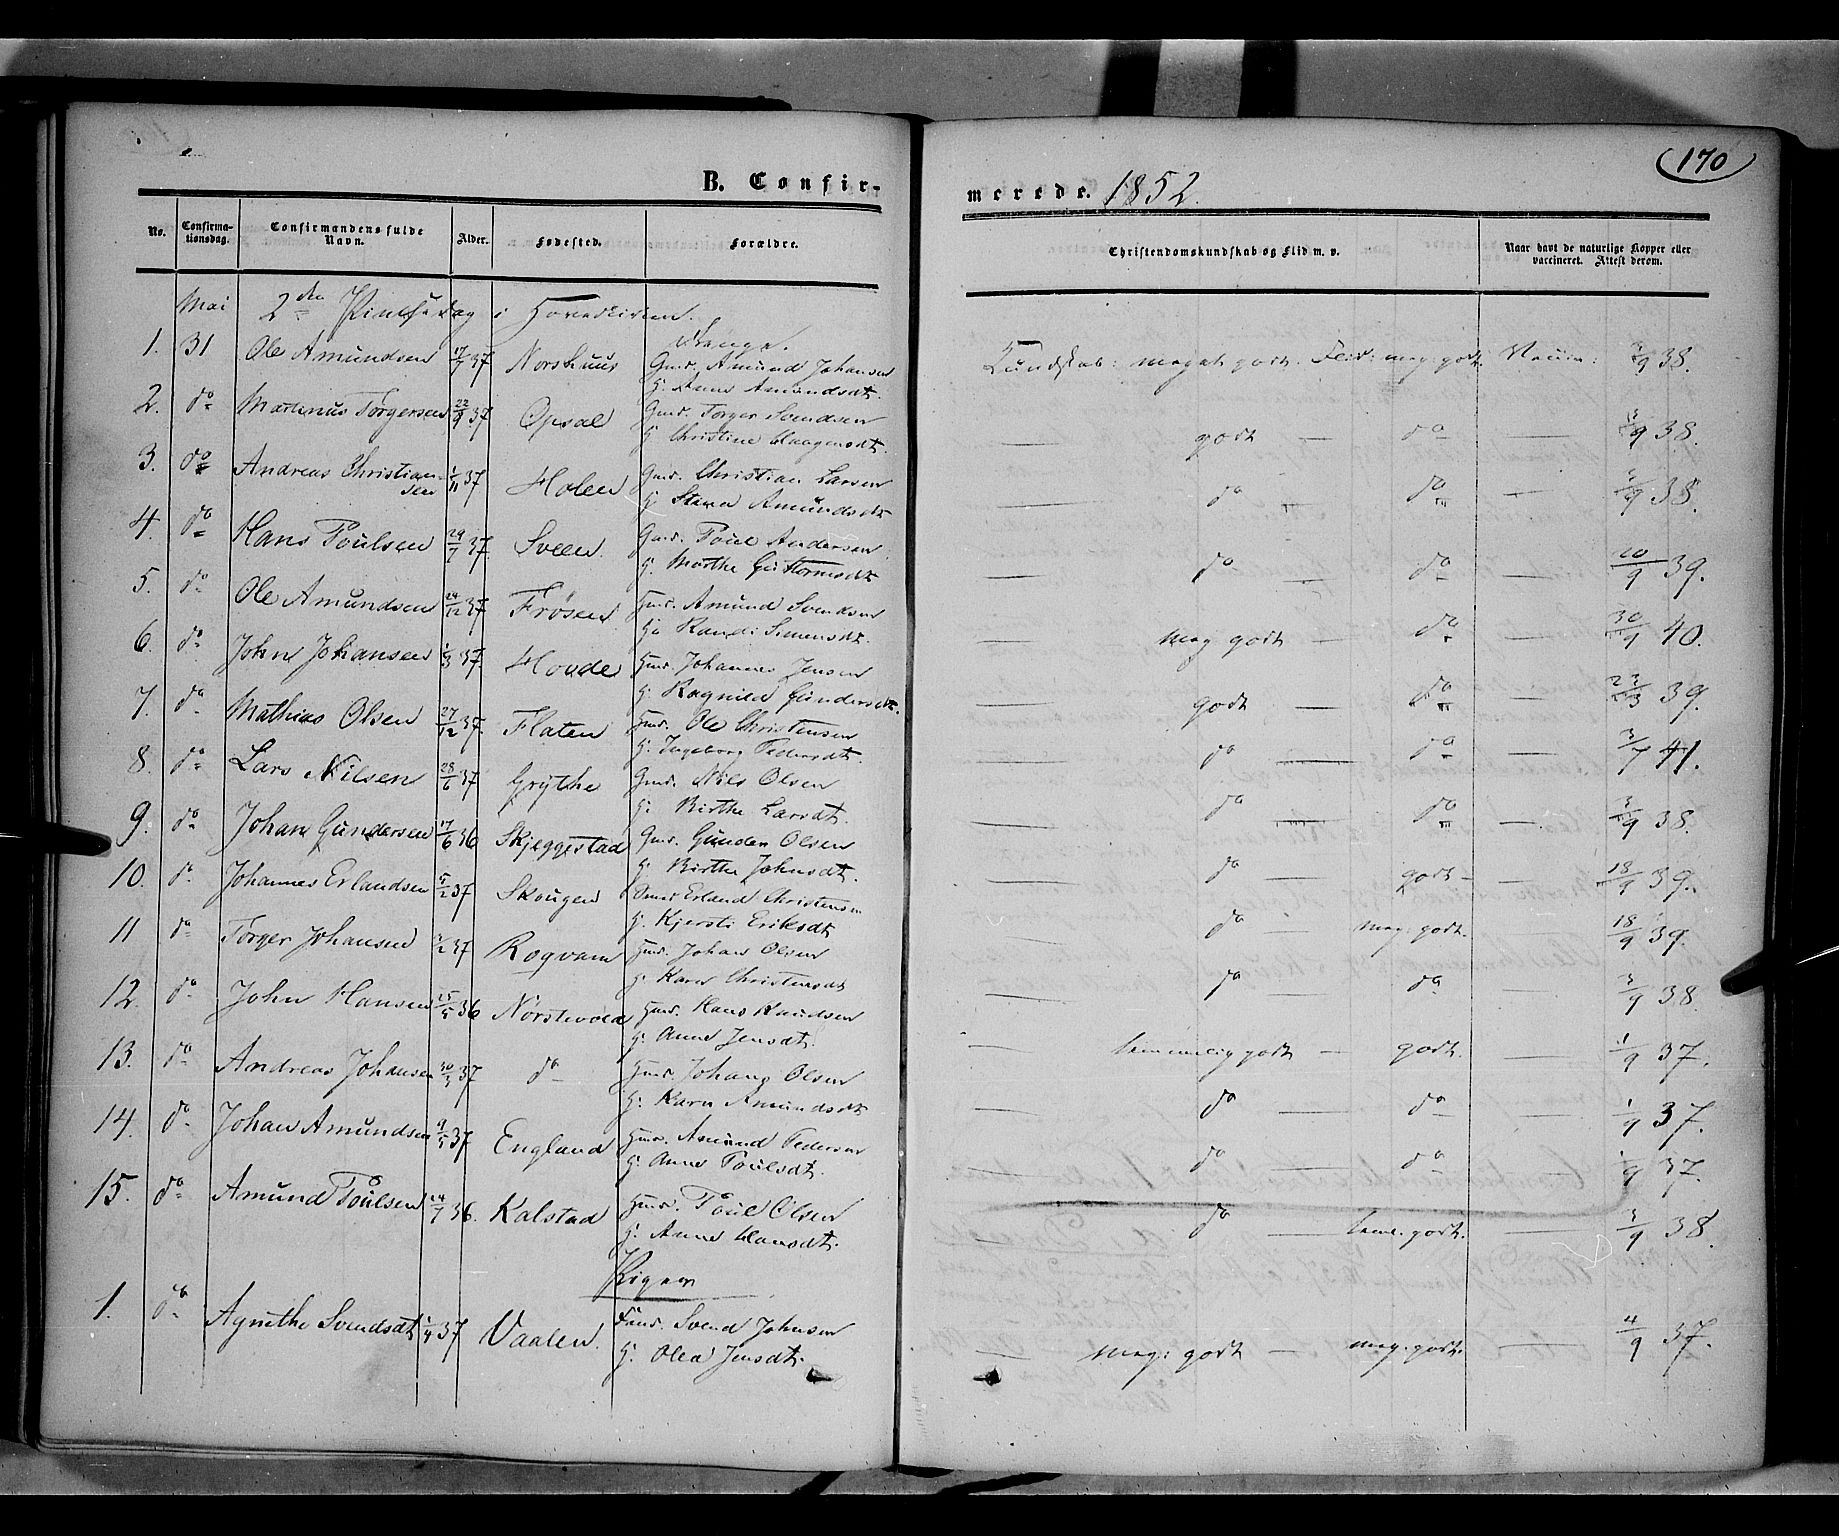 170
B. Confir-
merede. 1852.
No.
Confirma-
tionsdag.
Confirmandens fulde
Navn.
Alder.
Fødested.
Forældre.
Christendomskundskab og Flid m. v.
Naar havt de naturlige Kopper eller
vaccineret. Attest derom.
Mai 2den Pintsedag i Hovedkirken.
Drænge.
1. 31 Ole Amundsen 17/7 37 Norshuus Gmd. Amund Johansen
G. Anne Amundsdt.
Kundskab: meget godt. Flid: meg: godt. Vaccin: 3/9 38.
2. do Martinus Torgersen 22/9 37 Opsal Gmd. Torger Svendsen
G. Christine Haagensdt.
— godt — do — 3/9 38.
3. do Andreas Christian-
sen 1/11 37 Holen Gmd. Christian Larsen
G. Amundsdt
— do do — 3/9 38.
4. do Hans Poulsen 29/7 37. Sveen. Gmd. Poul Andersen
G. Marthe Guttormsdt
— do — do — 20/9 39.
5. do Ole Amundsen 24/12 37 Frøsen Hmd. Amund Svendsen
G. Randi Simensdt.
— meg godt — do — 30/9 40.
6. do John Johansen 1/3 37 Hovde Hmd. Johannes Jensen
G. Ragnild Gundersdt.
— godt — do — 23/3 39.
7. do Mathias Olsen 27/12 37. Flaten Hmd. Ole Christensen
G. Ingeborg Pedersdt.
— do — do — 3/7 41.
8. do Lars Nilsen 28/6 37 Grythe Gmd. Nils Olsen
G. Birthe Larsdt.
— do do — 3/9 38.
9. do Johan Gundersen 17/6 36 Skjeggestad Gmd. Gunder Olsen
G. Birthe Johnsdt.
— do godt — — 18/9 39.
10. do Johannes Erlandsen 5/2 37 Skougen Erland Christensen
G. Kjersti Eriksdt
— do — meg: godt. 18/9 39.
11 do Torger Johansen 2/2 37 Rogvam Hmd. Johan Olsen
G. Karen Christensdt
— do — do — 3/9 38.
12. do John Hansen 25/5 36 Nørstevold Hmd. Hans Knudsen
G. Anne Jensdt.
— temmelig godt — godt. — 1/9 37.
13. do Andreas Johansen 30/3 37 do Hmd. Johan Olsen
G. Karen Amundsdt
— do — do — 1/9 37.
14. do Johan Amundsen 9/5 37 England Hmd. Amund Pedersen
G. Anne Poulsdt.
— do — do — 1/9 37.
15. do Amund Poulsen 24/7 36. Kalstad Hmd. Poul Olsen
G. Anne Hansdt.
— do — teml. godt. — 3/9 38.
Piger
1. do Agnethe Svendsdt 1/4 37 Vaalen. Svend Johnsen
G. Olea Jensdt.
— meg: godt — meg. godt. — 4/9 37.